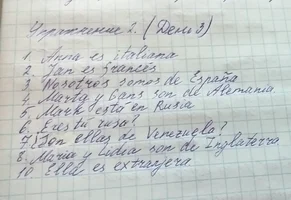 Упражнение 2. (Дено 3)
1 Anna es italiana
2. Jan es francés
3. Nosotros somos de España
4. Marta y Hans son de Alemania
5. Mark está en Rusia
6. Eres tú rusa?
7. Son ellas de Venezuela?
8. Maria y Lidia son de Inglaterra
10. Ella es extrajera